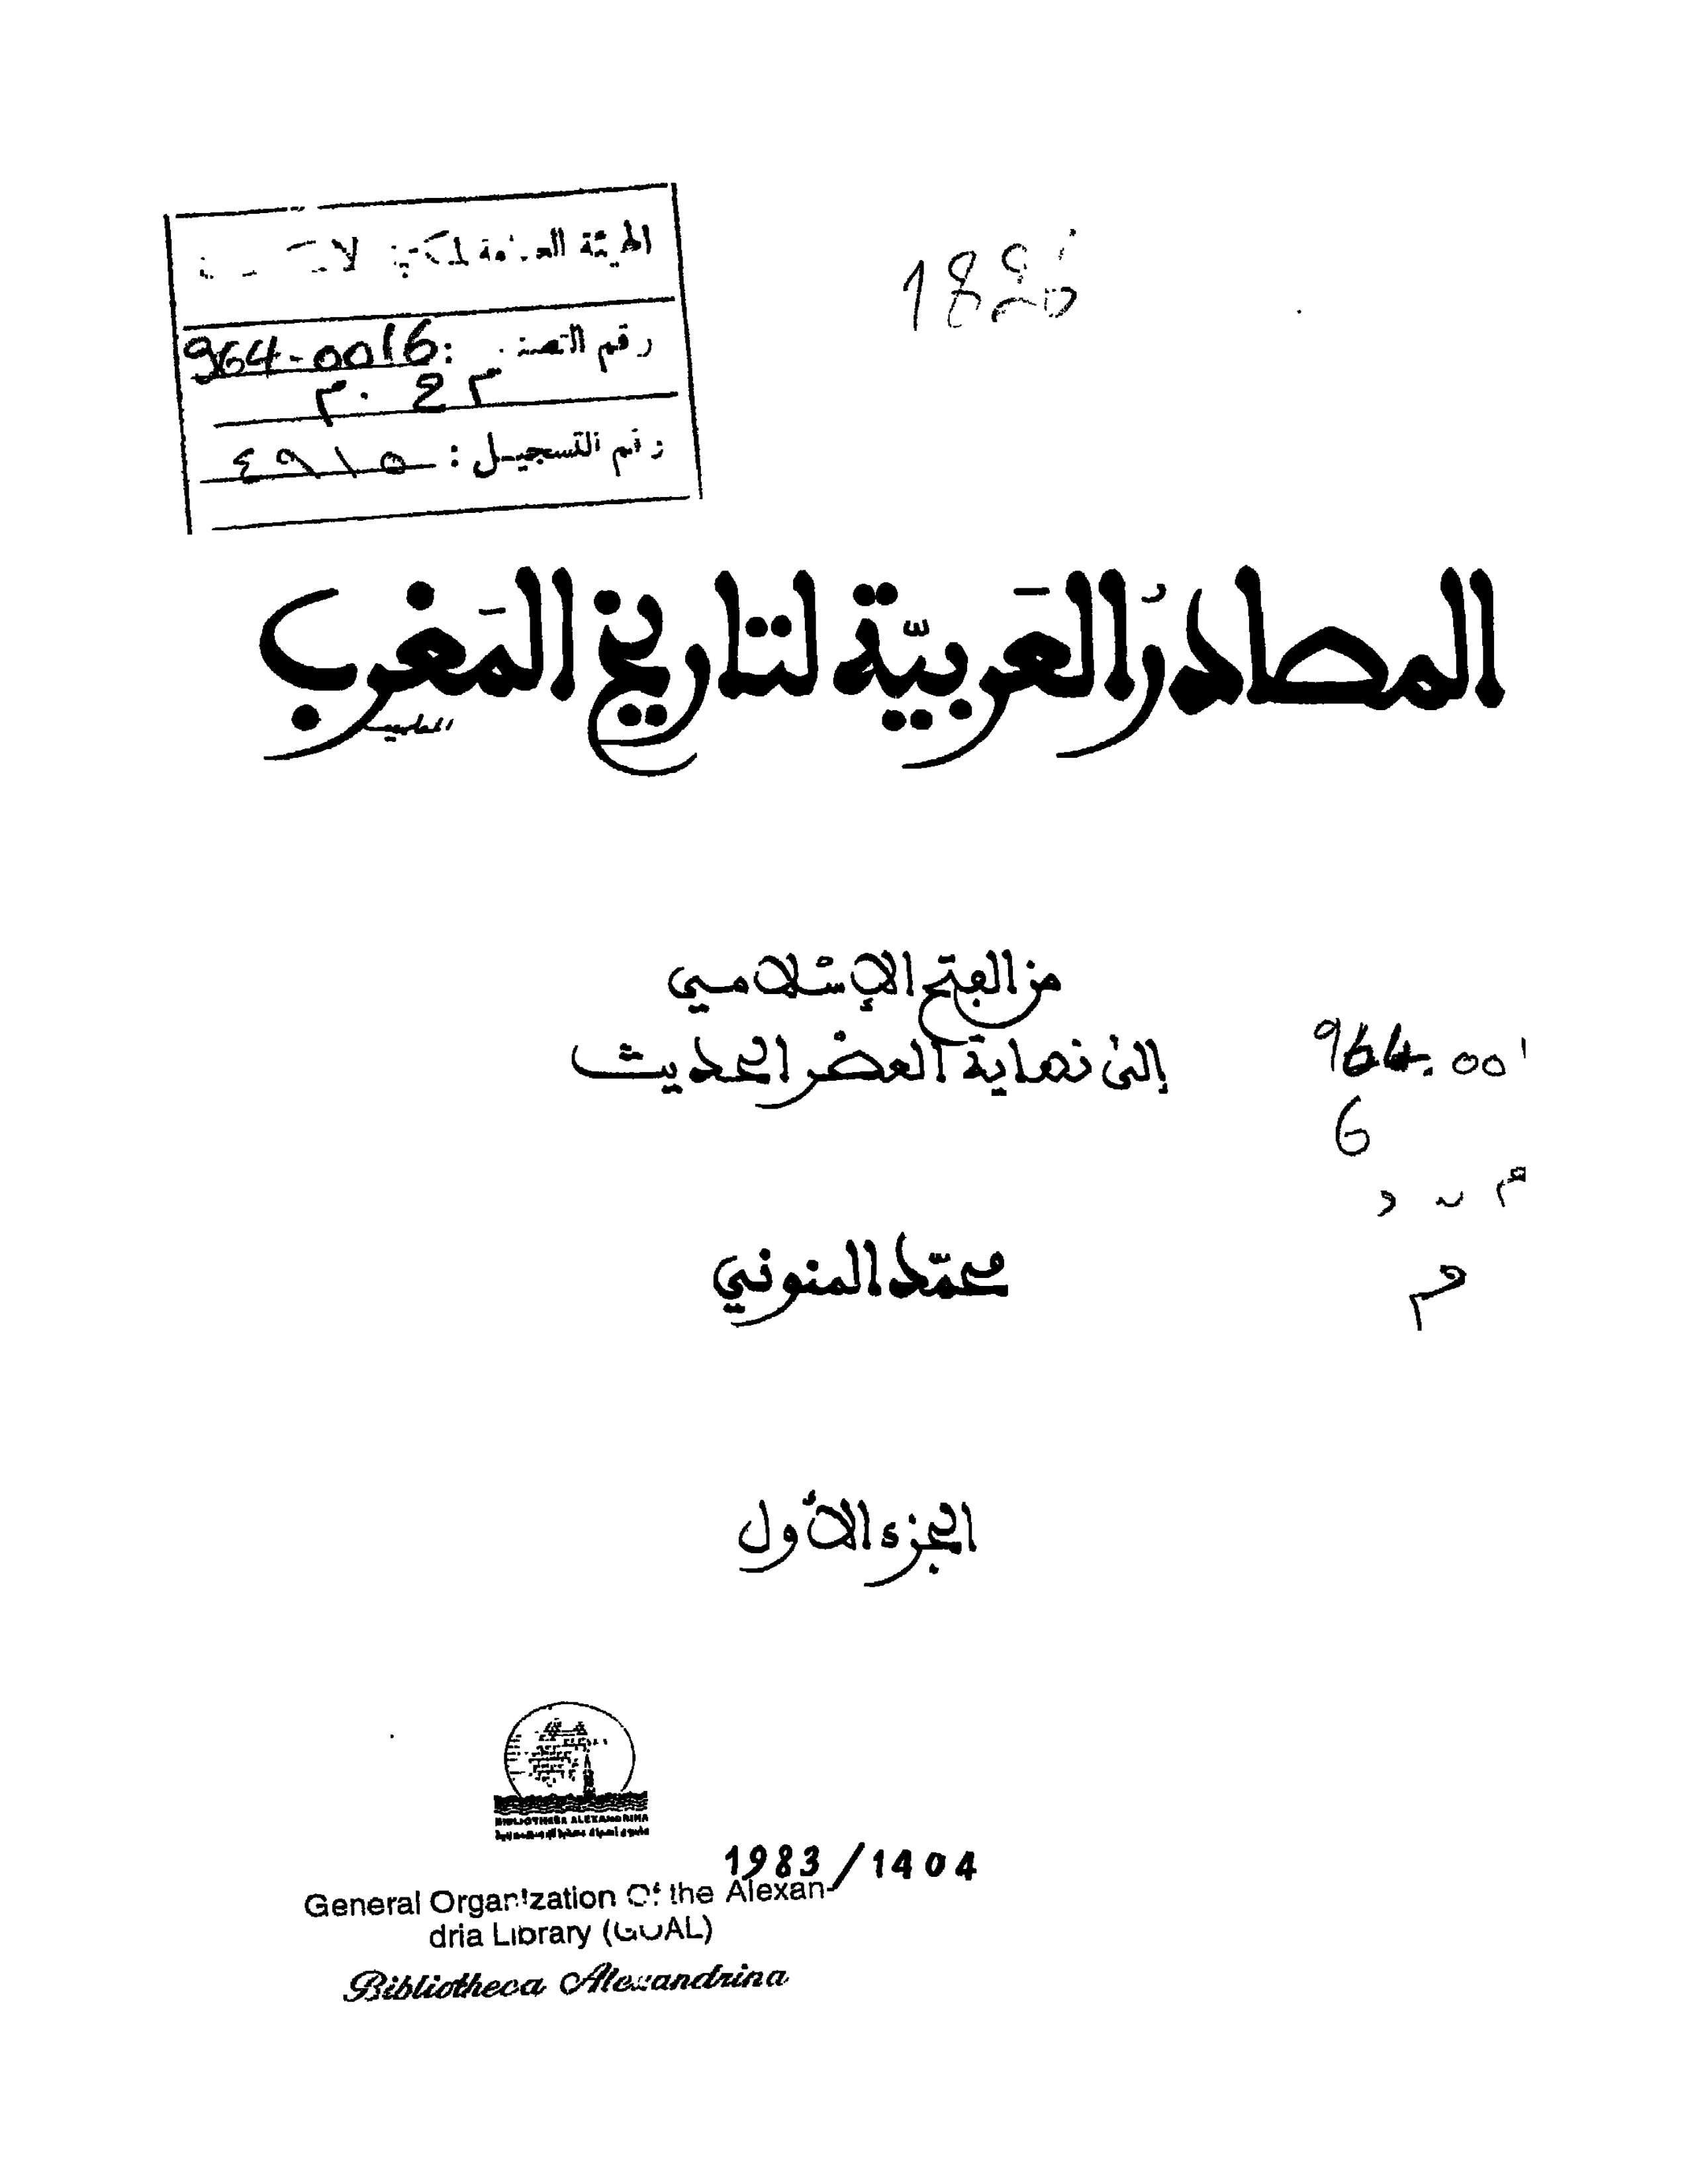 الهيئة العامة لمكتبة الاسكندرية
رقم التصنيف : 964.0016
رقم التسجيل : ٤٩١٥
المصادر العربية لتاريخ المغرب
من الفتح الإسلامي
إلى نهاية العصر الحديث
964.001
6
محمّد المنوني
م
الجزء الأول
BIBLIOTHECA ALEXANDRINA
1983/1404
General Organization Of the Alexan-
dria Library (GOAL)
Bibliotheca Alexandrina